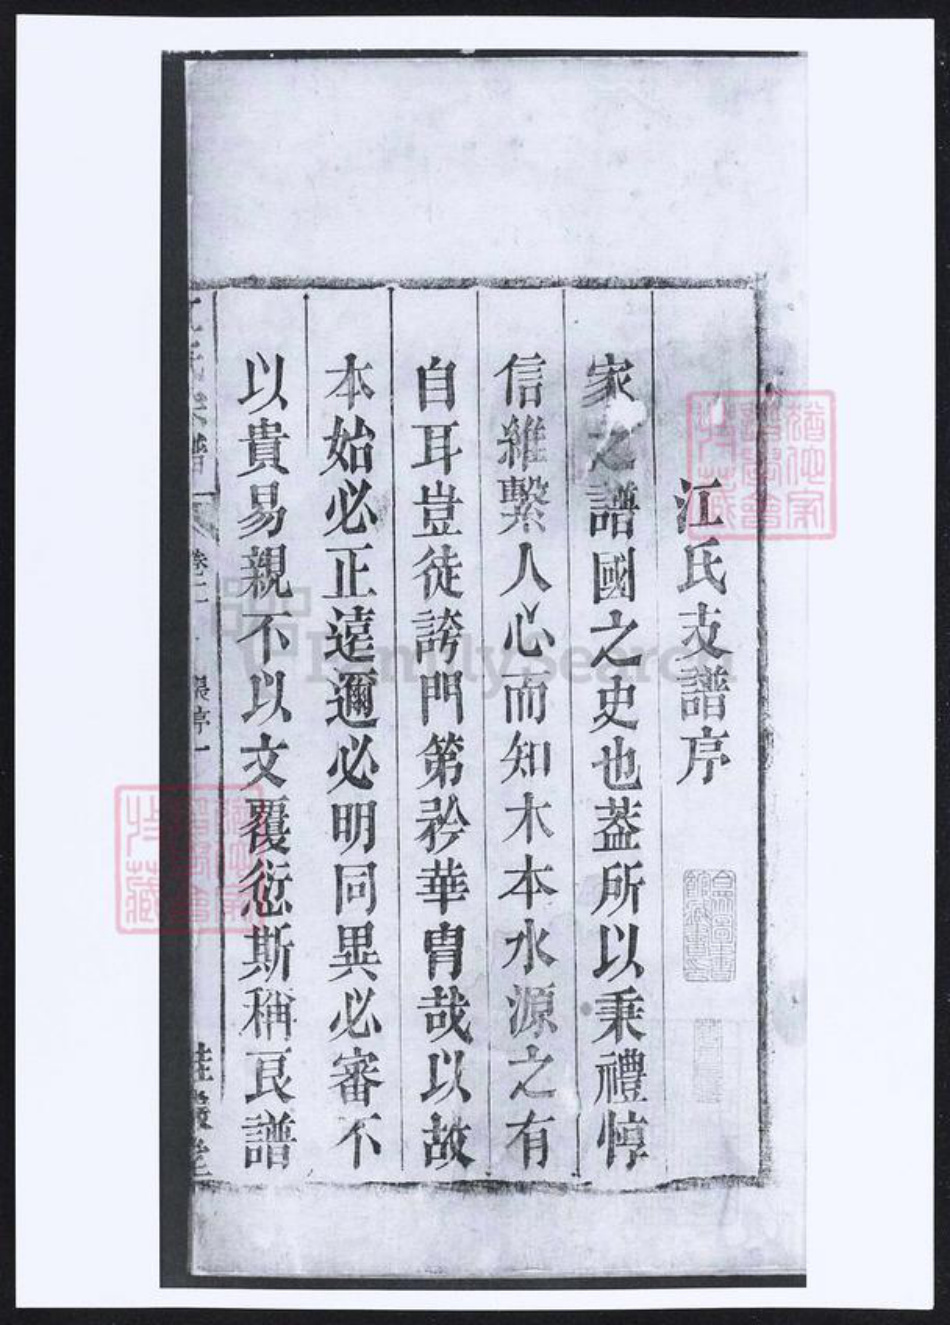 江氏支譜序
家之譜國之史也葢所以秉禮惇
信維繫人心而知木本水源之有
自耳豈徒誇門第矜華胄哉以故
本始必正遠邇必明同異必審不
以貴易親不以文覆愆斯稱良譜
卷二
猶他家
譜學會
收藏
猶他家
譜學會
收藏
FamilySearch